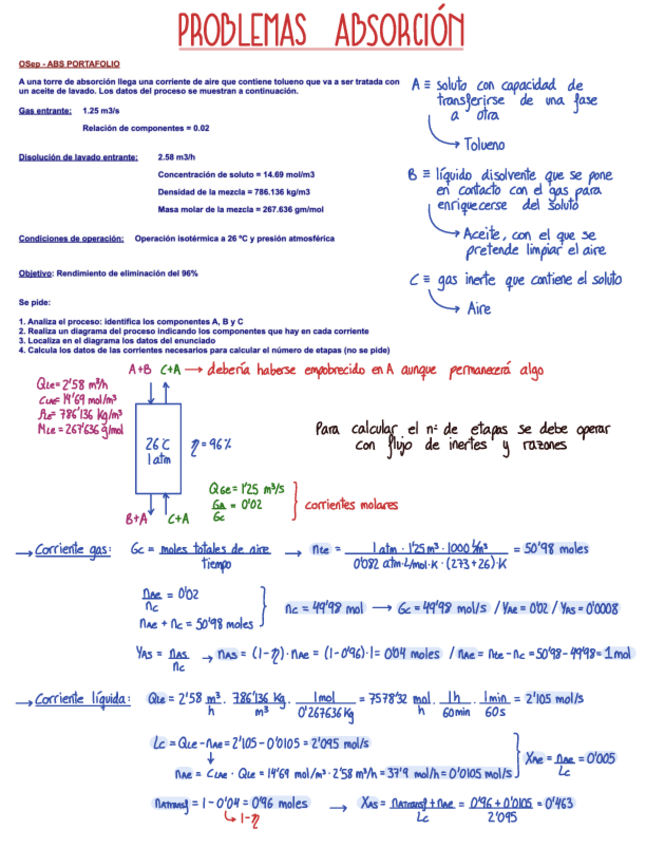 PROBLEMAS ABSORCIÓN
OSep - ABS PORTAFOLIO
A una torre de absorción llega una corriente de aire que contiene tolueno que va a ser tratada con
un aceite de lavado. Los datos del proceso se muestran a continuación.
Gas entrante: 1.25 m3/s
Relación de componentes = 0.02
Disolución de lavado entrante: 2.58 m3/h
Concentración de soluto = 14.69 mol/m3
Densidad de la mezcla = 786.136 kg/m3
Masa molar de la mezcla = 267.636 gm/mol
Condiciones de operación: Operación isotérmica a 26 ºC y presión atmosférica
Objetivo: Rendimiento de eliminación del 96%
Se pide:
1. Analiza el proceso: identifica los componentes A, B y C
2. Realiza un diagrama del proceso indicando los componentes que hay en cada corriente
3. Localiza en el diagrama los datos del enunciado
4. Calcula los datos de las corrientes necesarios para calcular el número de etapas (no se pide)
A ≡ soluto con capacidad de
transferirse de una fase
a otra
→ Tolueno
B ≡ líquido disolvente que se pone
en contacto con el gas para
enriquecerse del soluto
→ Aceite, con el que se
pretende limpiar el aire
C ≡ gas inerte que contiene el soluto
→ Aire
A+B C+A → debería haberse empobrecido en A aunque permanecerá algo
QLe = 2'58 m³/h
CLAe = 14'69 mol/m³
ρLe = 786'136 Kg/m³
MLe = 267'636 g/mol
26 C
1 atm
η = 96%
Para calcular el nº de etapas se debe operar
con flujo de inertes y razones
B+A C+A
QGe = 1'25 m³/s
GA/GC = 0'02
corrientes molares
→ Corriente gas: Gc = moles totales de aire / tiempo → nte = 1 atm · 1'25 m³ · 1000 L/m³ / 0'082 atm·L/mol·K · (273+26)·K = 50'98 moles
nAe/nc = 0'02
nAe + nc = 50'98 moles
nc = 49'98 mol → Gc = 49'98 mol/s / YAe = 0'02 / YAs = 0'0008
YAs = nAs/nc → nAs = (1-η)·nAe = (1-0'96)·1 = 0'04 moles / nAe = nte - nc = 50'98 - 49'98 = 1 mol
→ Corriente líquida: QLe = 2'58 m³/h · 786'136 Kg/m³ · 1mol/0'267636 Kg = 7578'32 mol/h · 1h/60min · 1min/60s = 2'105 mol/s
Lc = QLe - nAe = 2'105 - 0'0105 = 2'095 mol/s
nAe = CLAe · QLe = 14'69 mol/m³ · 2'58 m³/h = 37'9 mol/h = 0'0105 mol/s
XAe = nAe/Lc = 0'005
nAtransf = 1 - 0'04 = 0'96 moles → XAs = nAtransf + nAe / Lc = 0'96 + 0'0105 / 2'095 = 0'463
↳ 1-η